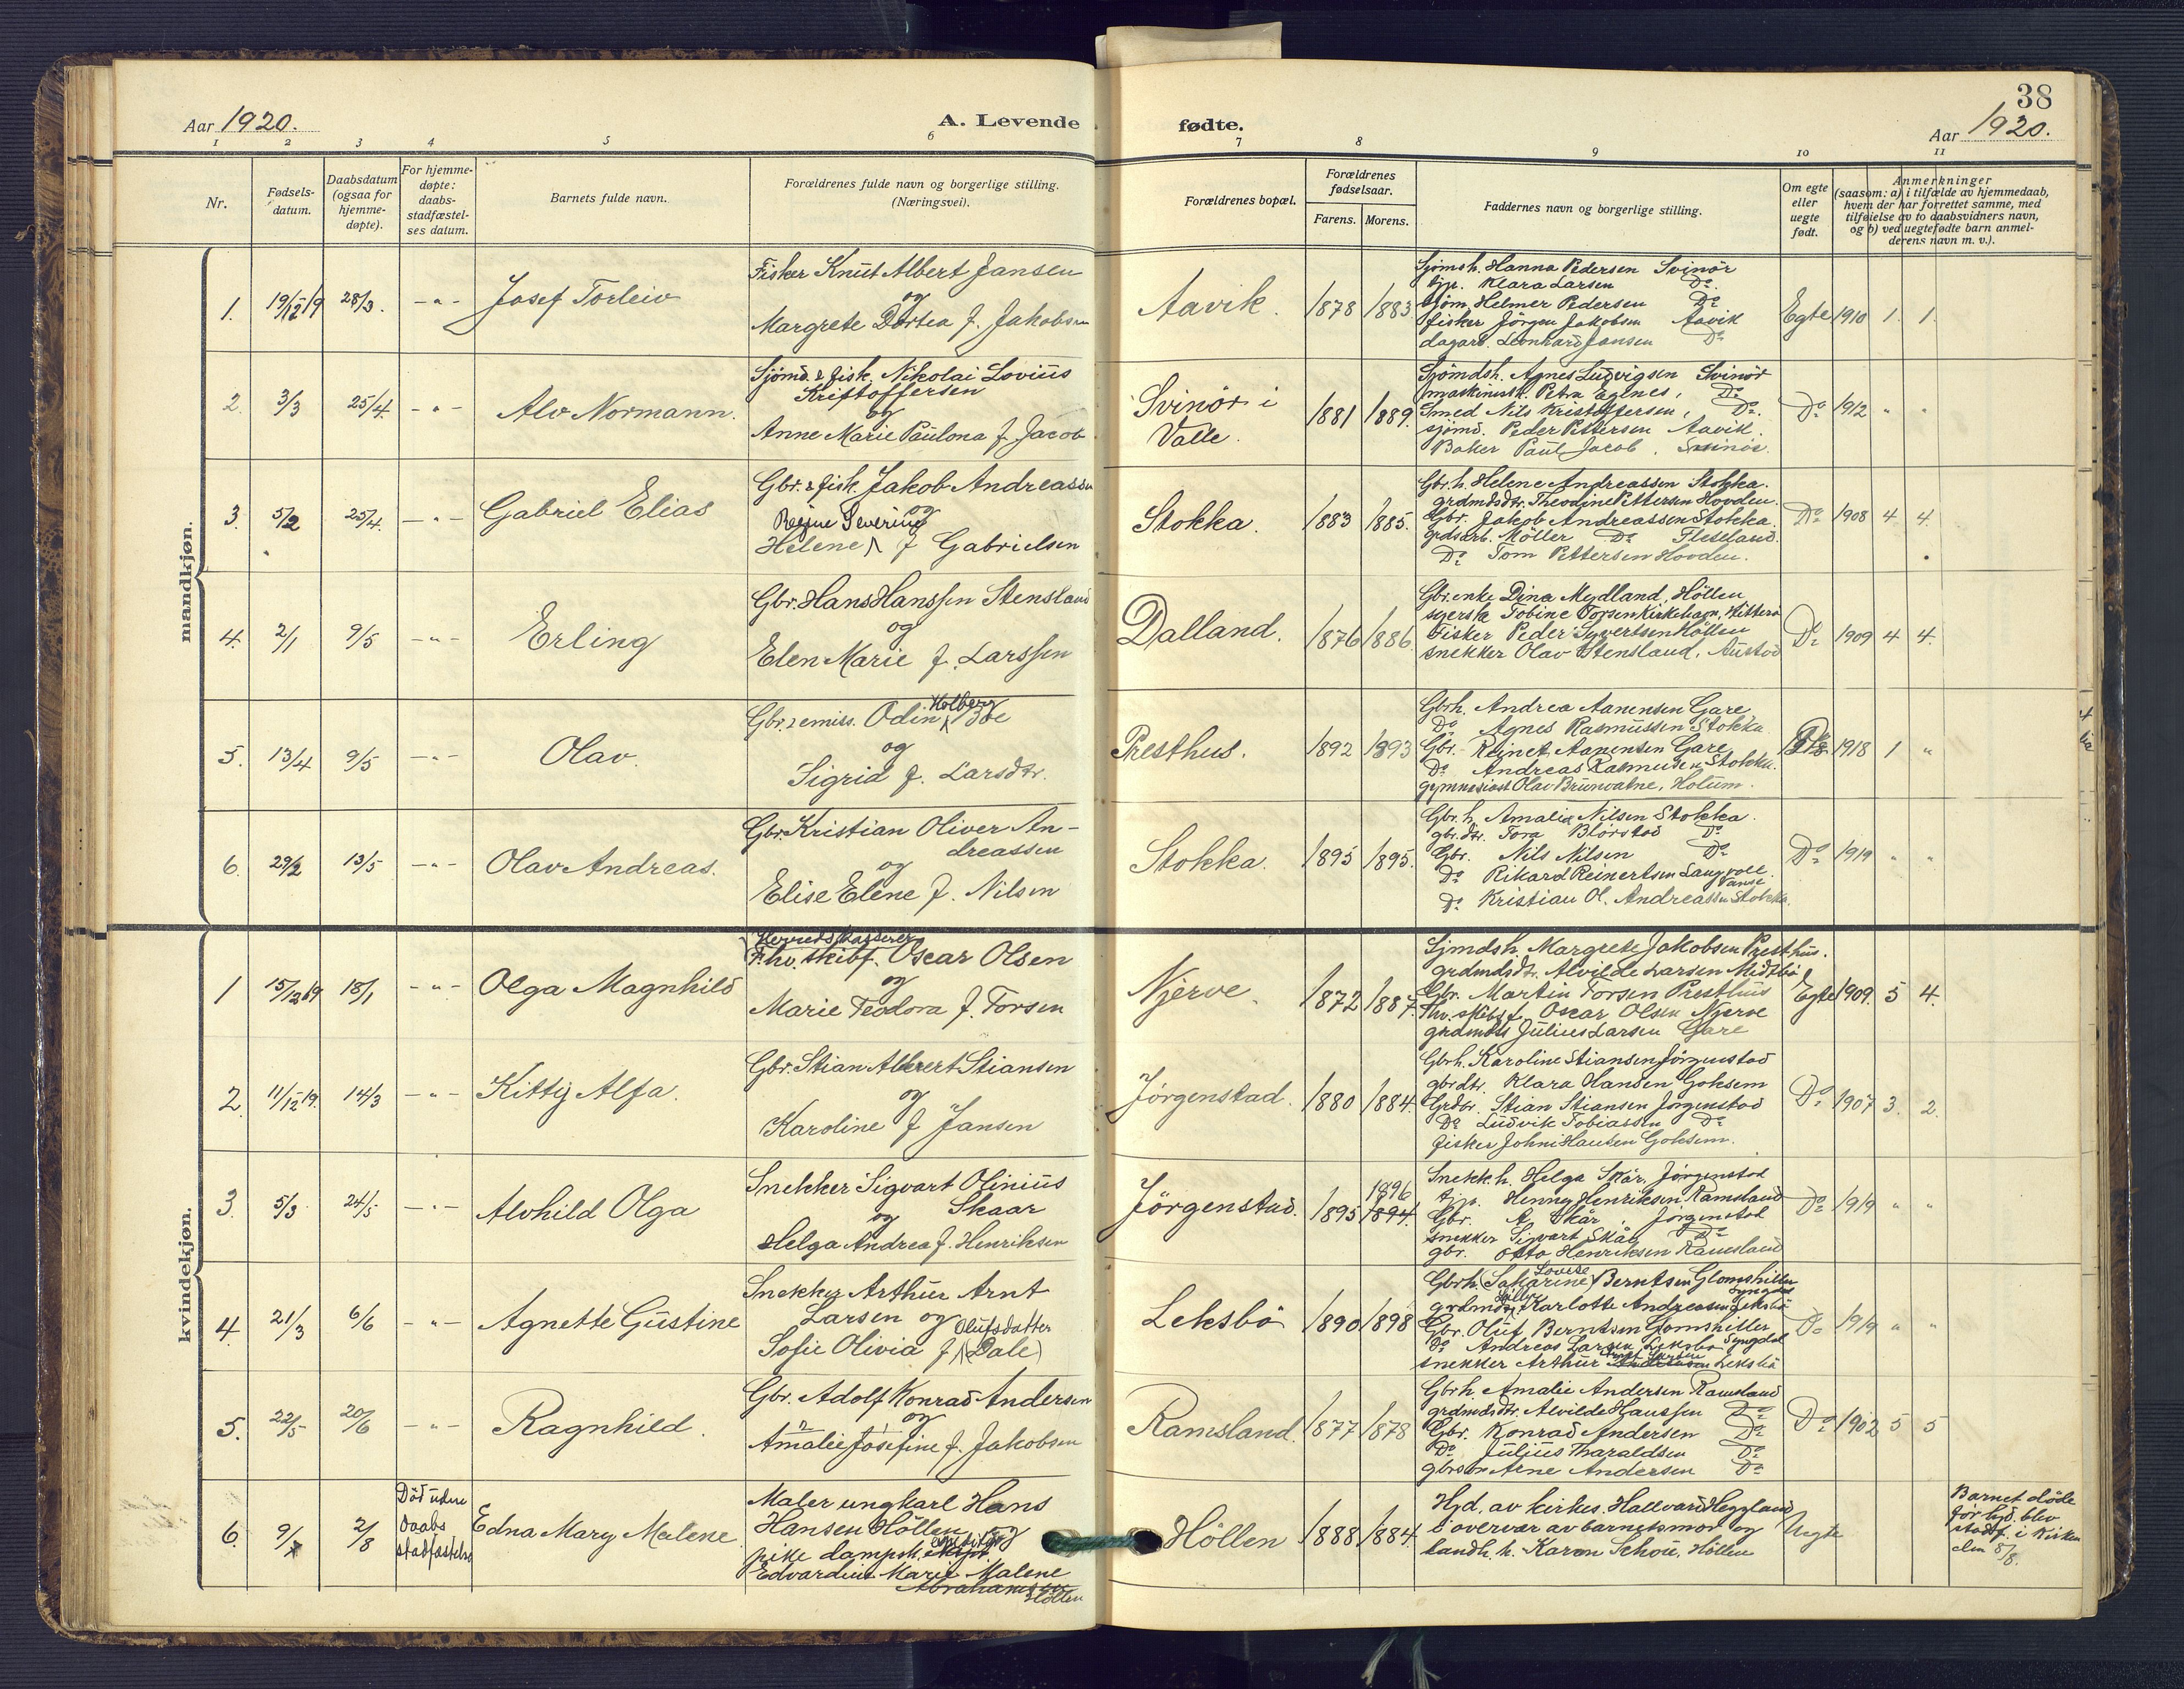 38
Aar 1920.
A. Levende fødte.
Aar 1920.
1 2 3 4 5 6 7 8 9 10 11
Nr.
Fødsels-
datum.
Daabsdatum
(ogsaa for
hjemme-
døpte).
For hjemme-
døpte:
daabs-
stadfæstel-
ses datum.
Barnets fulde navn.
Forældrenes fulde navn og borgerlige stilling.
(Næringsvei).
Forældrenes bopæl.
Forældrenes
fødselsaar.
Farens. Morens.
Faddernes navn og borgerlige stilling.
Om egte
eller
uegte
født.
Anmerkninger
(saasom: a) i tilfælde av hjemmedaab,
hvem der har forrettet samme, med
tilføielse av to daabsvidners navn,
og b) ved uegtefødte barn anmel-
derens navn m. v.).
mandkjøn.
1. 19/12 19 28/3. -"- Josef Torleiv
Fisker Knut Albert Jansen
og
Margrete Dortea f. Jakobsen
Aavik. 1878 1883.
Sjømsh. Hanna Pedersen Svinør
tjp. Klara Larsen Do
Sjøm. Helmer Pedersen Do
fisker Jörgen Jakobsen Aavik
dagarb. Leonhard Jansen Do
Egte 1910 1. 1.
2. 3/3 25/4. -"- Alv Normann.
Sjömd. & fisk. Nikolai Lovius
Kristoffersen
og
Anne Marie Paulona f. Jacob
Svinör i
Valle. 1881 1889.
Sjömdsh. Agnes Ludvigsen Svinör
maskinisth. Petra Egenes, Do
Smed Nils Kristoffersen, Do.
sjömd. Peder Pettersen Aavik.
Baker Paul Jacob. Svinör.
Do 1912 " "
3. 5/2 25/4. -"- Gabriel Elias
Gbr. & fisk. Jakob Andreassen
og
Regine Severine
Helene f Gabrielsen
Stokka. 1883 1885.
Gbr. h. Helene Andreassen Stokka.
grdmdsdtr. Theodine Pettersen Hovden.
Gbr. Jakob Andreassen Stokka.
grdsarb. Möller Do Fleseland.
Do Tom Pettersen Hovden.
Do 1908 4 4.
4. 2/1 9/5 -"- Erling
Gbr. Hans Hanssen Stensland
og
Elen Marie f. Larssen
Dalland. 1876 1886.
Gbr. enke Dina Mydland, Höllen
syerske Tobine Torsen Kirkehavn, Hitterø
Fisker Peder Syvertsen Höllen
snekker Olav Stensland, Austad
Do 1909 4 4.
5. 13/4 9/5 -"- Olav.
Gbr. & emiss. Odin Holberg Bøe
og
Sigrid f. Larsdtr.
Presthus. 1892 1893
Gbrh. Andrea Aanensen Gare
Do Agnes Rasmussen Stokka
Gbr. Reinet Aanensen Gare
Do Andreas Rasmussen Stokka.
gymnasiast Olav Brunvatne, Holum.
Do 1918 1 "
6. 29/2 13/5 -"- Olav Andreas.
Gbr. Kristian Oliver An-
dreassen
og
Elise Elene f. Nilsen
Stokka. 1895 1895.
Gbr. h. Amalia Nilsen Stokka.
gbr. dtr. Tora Blörstad Do
Gbr. Nils Nilsen Do
Do Rikard Reinertsen Langvoll.
Vanse
Do Kristian Ol. Andreassen Stokka.
Do 1919 " "
kvindekjøn.
1 15/12 19 18/1 -"- Olga Magnhild
Herredskasserer
F.hv. skibsf. Oscar Olsen
og
Marie Teodora f. Torsen
Njerve. 1872 1887.
Sjmdsh. Margrete Jakobsen Presthus.
grdmdsdt. Alvilde Larsen Midtbö
Gbr. Martin Torsen Presthus
fhv. skibsf. Oscar Olsen Njerve
grdmds Julius Larsen Gare
Egte 1909. 5 4.
2. 11/12 19. 14/3 -"- Kitty Alfa.
Gbr. Stian Albert Stiansen
og
Karoline f Jansen
Jørgenstad. 1880 1884.
Gbrh. Karoline Stiansen Jørgenstad
gbrdtr. Klara Hansen Goksem
Grdbr. Stian Stiansen Jørgenstad
Do Ludvik Tobiassen Do
fisker Johni Hansen Goksem.
Do 1907 3. 2.
3. 5/3 24/5 -"- Alvhild Olga
Snekker Sigvart Olinius
Skaar
og
Helga Andrea f. Henriksen
Jörgenstad. 1895 1896 1894.
Snekk. h. Helga Skår, Jörgenstad
tjp. Henny Henriksen Ramsland
Gbr. A. Skår, Jörgenstad
snekker Sigvart Skår Do
gbr. Otto Henriksen Ramsland
Do 1919 " "
4. 21/3 6/6 -"- Agnette Gustine
Snekker Arthur Arnt
Larsen og
Olufsdatter
Sofie Olivia f (Dale)
Leksbö 1890 1898
Lovise
Gbrh. (Sakarine) Berntsen Glomshiller
Syngdal
grdmdsh Karlotte Andreasen Leksbö
Gbr. Oluf Berntsen Glomshiller
Do Andreas Larsen Leksbö Syngdal
snekker Arthur Arnt Larsen Leksbö
Do 1919 " "
5. 22/5 20/6 -"- Ragnhild.
Gbr. Adolf Konrad Andersen
og
Amalie Josefine f. Jakobsen
Ramsland. 1877 1878
Gbrh. Amalie Andersen Ramsland
grdmdsdtr. Alvilde Hanssen Do
Gbr. Konrad Andersen Do
Do Julius Tharaldsen Do
gbrsøn Arne Andersen Do
Do 1902 5 5
6. 9/7 2/8
Död uden
daabs
stadfæstelse
Edna Mary Malene.
Maler ungkarl Hans
Hansen Höllen og
pike dampsk.
Edvardine Marie Malene
Abrahamsen
Höllen
Höllen 1888 1884.
Hjd. av kirkes. Hallvard Heggland
i overvær av barnets mor og
landh. h. Karen Schou, Höllen
Uegte
Barnet døde
før hjd. blev
stadf. i Kirken
den 8/8.